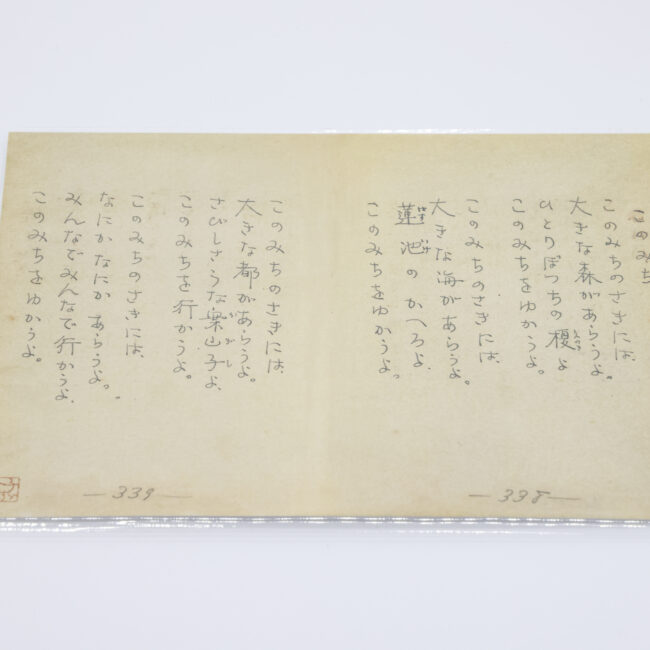 このみち
このみちのさきには、
大きな森があらうよ。
ひとりぼつちの榎よ
このみちをゆかうよ。
このみちのさきには、
大きな海があらうよ。
蓮池のかへろよ、
このみちをゆかうよ。
— 338 —
このみちのさきには、
大きな都があらうよ。
さびしさうな案山子よ、
このみちを行かうよ。
このみちのさきには、
なにかなにかあらうよ。
みんなでみんなで行かうよ、
このみちをゆかうよ。
— 339 —